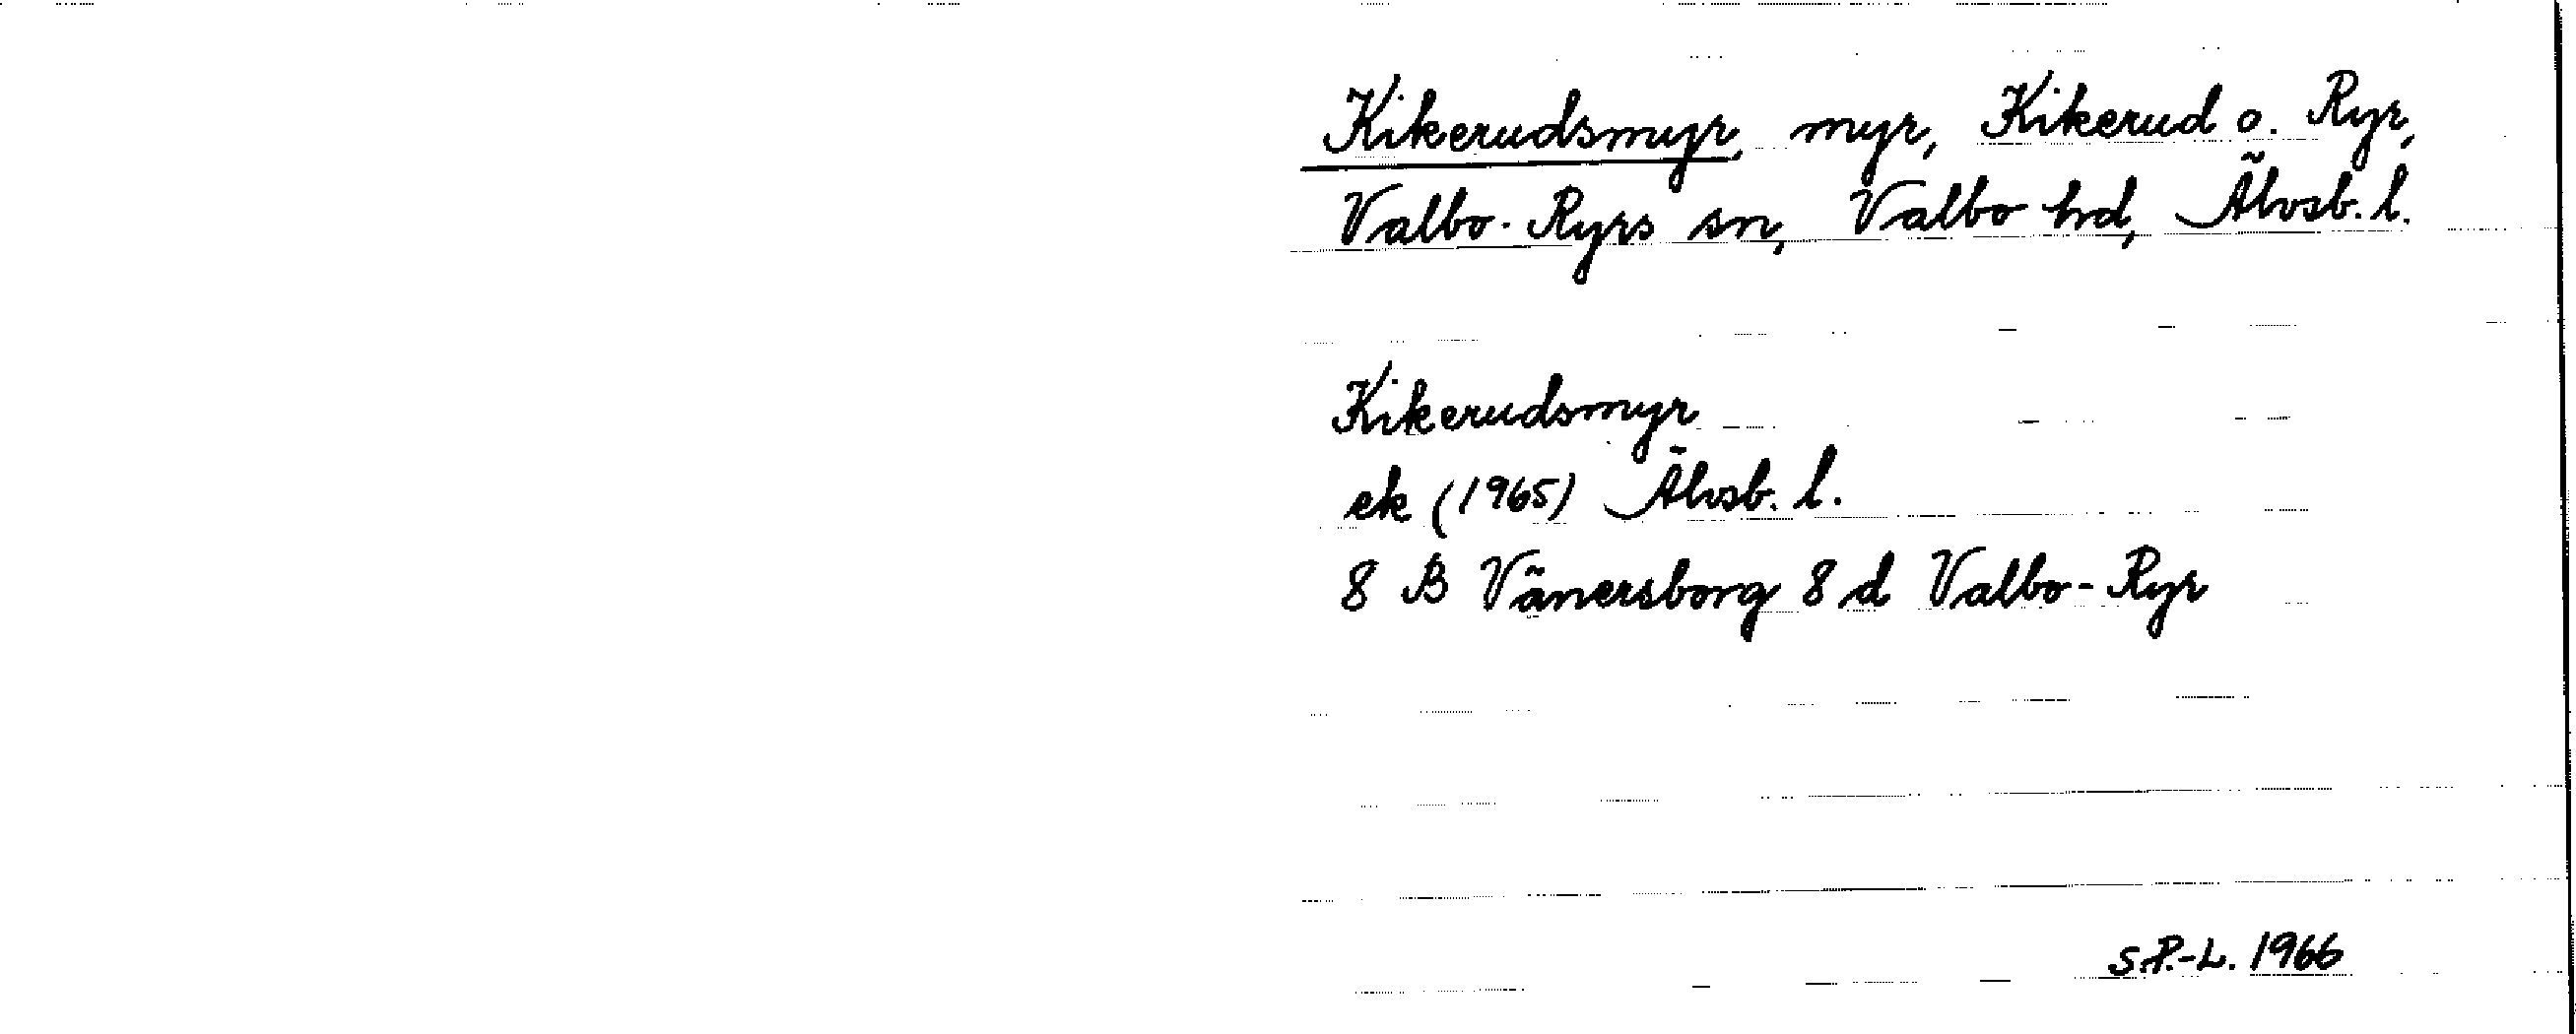 Kikerudsmyr, myr, Kikerud o. Ryr,
Valbo-Ryrs sn, Valbo hd, Älvsb. l.
Kikerudsmyr
ek (1965) Älvsb. l.
8 B Vänersborg 8 d Valbo-Ryr
S.P.-L. 1966